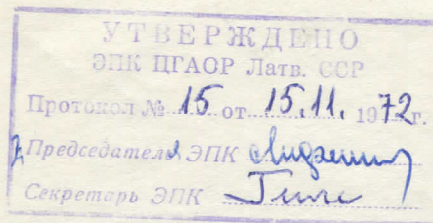 УТВЕРЖДЕНО
ЭПК ЦГАОР Латв. ССР
Протокол № 15 от 15.11. 1972г.
Председателя ЭПК
Секретарь ЭПК